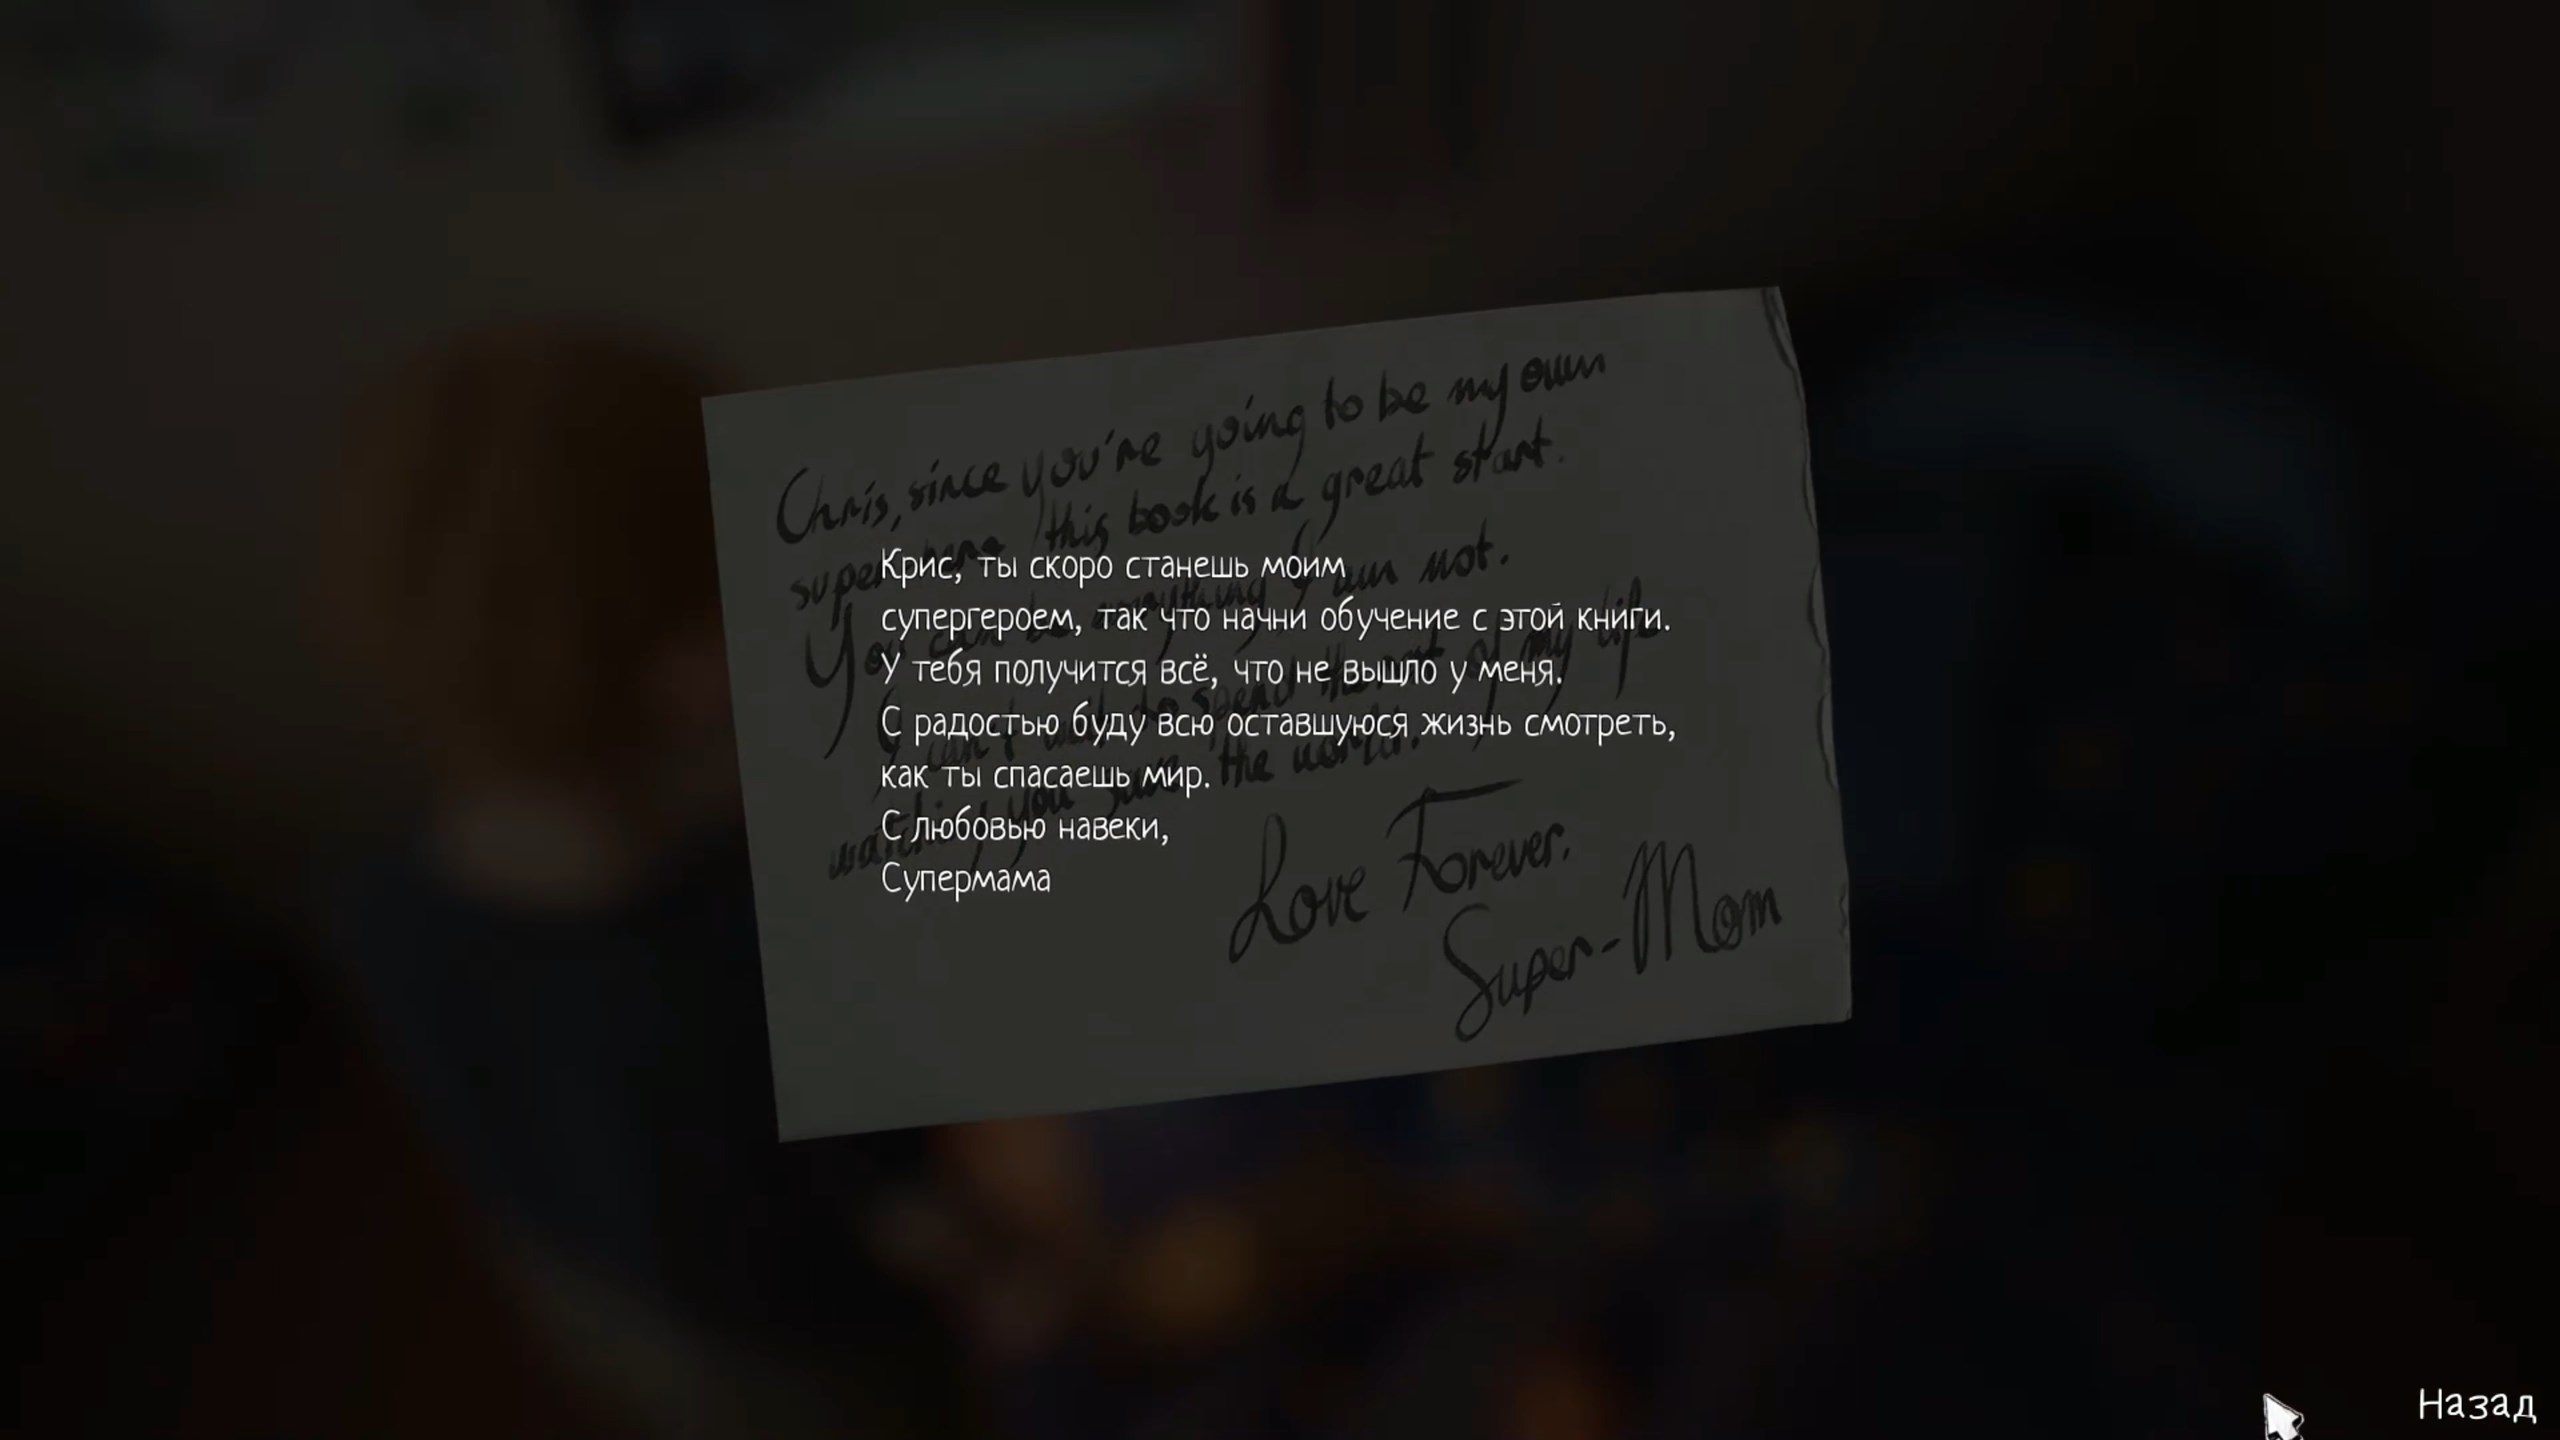 Chris, since you're going to be my own
this book is a great start.
I am not.
of my life
the world.
Love Forever.
Super-Mom
Крис, ты скоро станешь моим
супергероем, так что начни обучение с этой книги.
У тебя получится всё, что не вышло у меня.
С радостью буду всю оставшуюся жизнь смотреть,
как ты спасаешь мир.
С любовью навеки,
Супермама
Назад